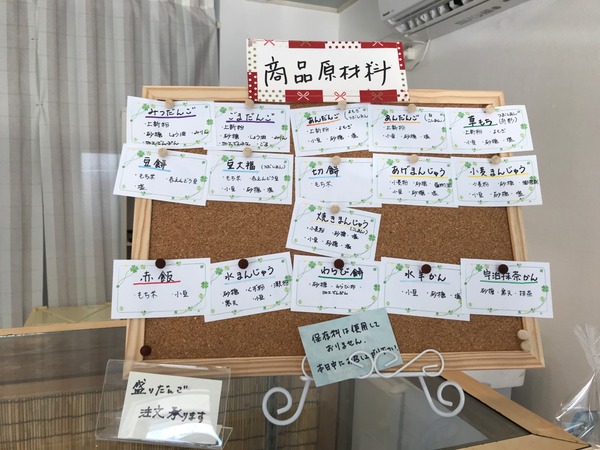 商品原材料
みつだんご
・上新粉
・砂糖・しょう油・みりん
ごまだんご
・上新粉
・砂糖・しょう油
あんだんご
上新粉・よもぎ
小豆・砂糖・塩
あんだんご
上新粉
小豆・砂糖・塩
草もち
上新粉・よもぎ
小豆・砂糖・塩
豆餅
・もち米・赤えんどう豆
・塩
豆大福
・もち米・赤えんどう豆
・小豆・砂糖・塩
切餅
・もち米
あげまんじゅう
・小麦粉・砂糖
・小豆・砂糖・塩
小麦まんじゅう
・小麦粉・砂糖
・小豆・砂糖・塩
焼きまんじゅう
小麦粉・砂糖・塩
小豆・砂糖・塩
赤飯
もち米 小豆
水まんじゅう
砂糖・くず粉
寒天 小豆
わらび餅
・砂糖・わらび粉
水羊かん
小豆・砂糖・塩
宇治抹茶かん
砂糖・寒天・抹茶
保存料は使用して
おりません。
本日中にお召し上がり下さい
盛りだんご
注文承ります